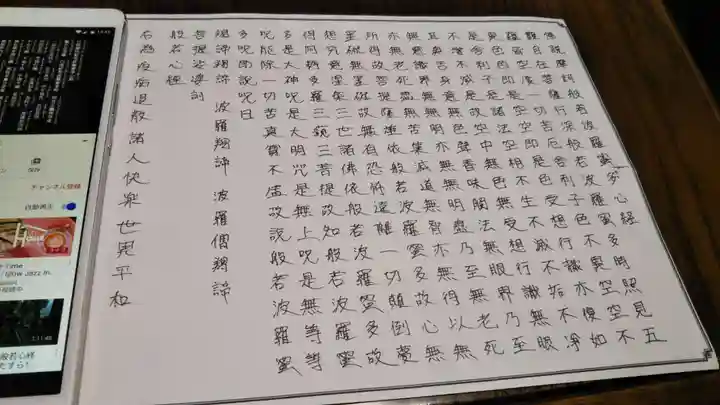 佛説摩訶般若波羅蜜多心経
觀自在菩薩行深般若波羅蜜多時照見五
蘊皆空度一切苦厄舎利子色不異空空不
異色色即是空空即是色受想行識亦復如
是舎利子是諸法空相不生不滅不垢不浄
不増不減是故空中無色無受想行識無眼
耳鼻舌身意無色聲香味觸法無眼界乃至
無意識界無無明亦無無明盡乃至無老死
亦無老死盡無苦集滅道無智亦無得以無
所得故菩提薩埵依般若波羅蜜多故心無
罣礙無罣礙故無有恐怖遠離一切顛倒夢
想究竟涅槃三世諸佛依般若波羅蜜多故
得阿耨多羅三藐三菩提故知般若波羅蜜
多是大神呪是大明呪是無上呪是無等等
呪能除一切苦真實不虚故説般若波羅蜜
多呪即説呪曰
羯諦羯諦 波羅羯諦 波羅僧羯諦
菩提娑婆訶
般若心経
右為疫病退散 諸人快楽 世界平和
保存
チャンネル登録
自動再生